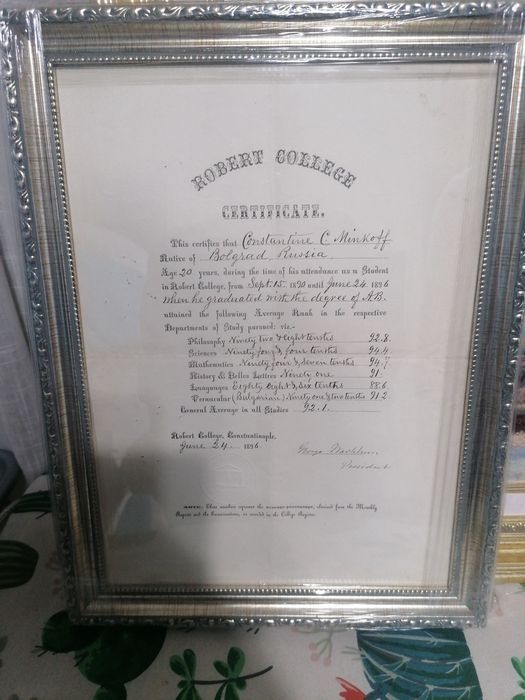 ROBERT COLLEGE
CERTIFICATE.
This certifies that Constantine C Minkoff
Native of Bolgrad Russia
Age 20 years, during the time of his attendance as a Student
in Robert College, from Sept. 15. 1890 until June 24 1896
When he graduated with the degree of A.B.
attained the following Average Rank in the respective
Departments of Study pursued: viz.-
Philosophy Ninety two & eight tenths 92.8.
Sciences Ninety four & four tenths 94.4
Mathematics Ninety four & seven tenths 94.7
History & Belles Lettres Ninety one 91.
Languages Eighty eight & six tenths 88.6
Vernacular (Bulgarian) Ninety one & two tenths 91.2
General Average in all Studies 92.1.
Robert College, Constantinople,
June 24. 1896.
George Washburn,
President
NOTE. These numbers represent the obtained from the Monthly
Reports and the Examinations, as recorded in the College Register.